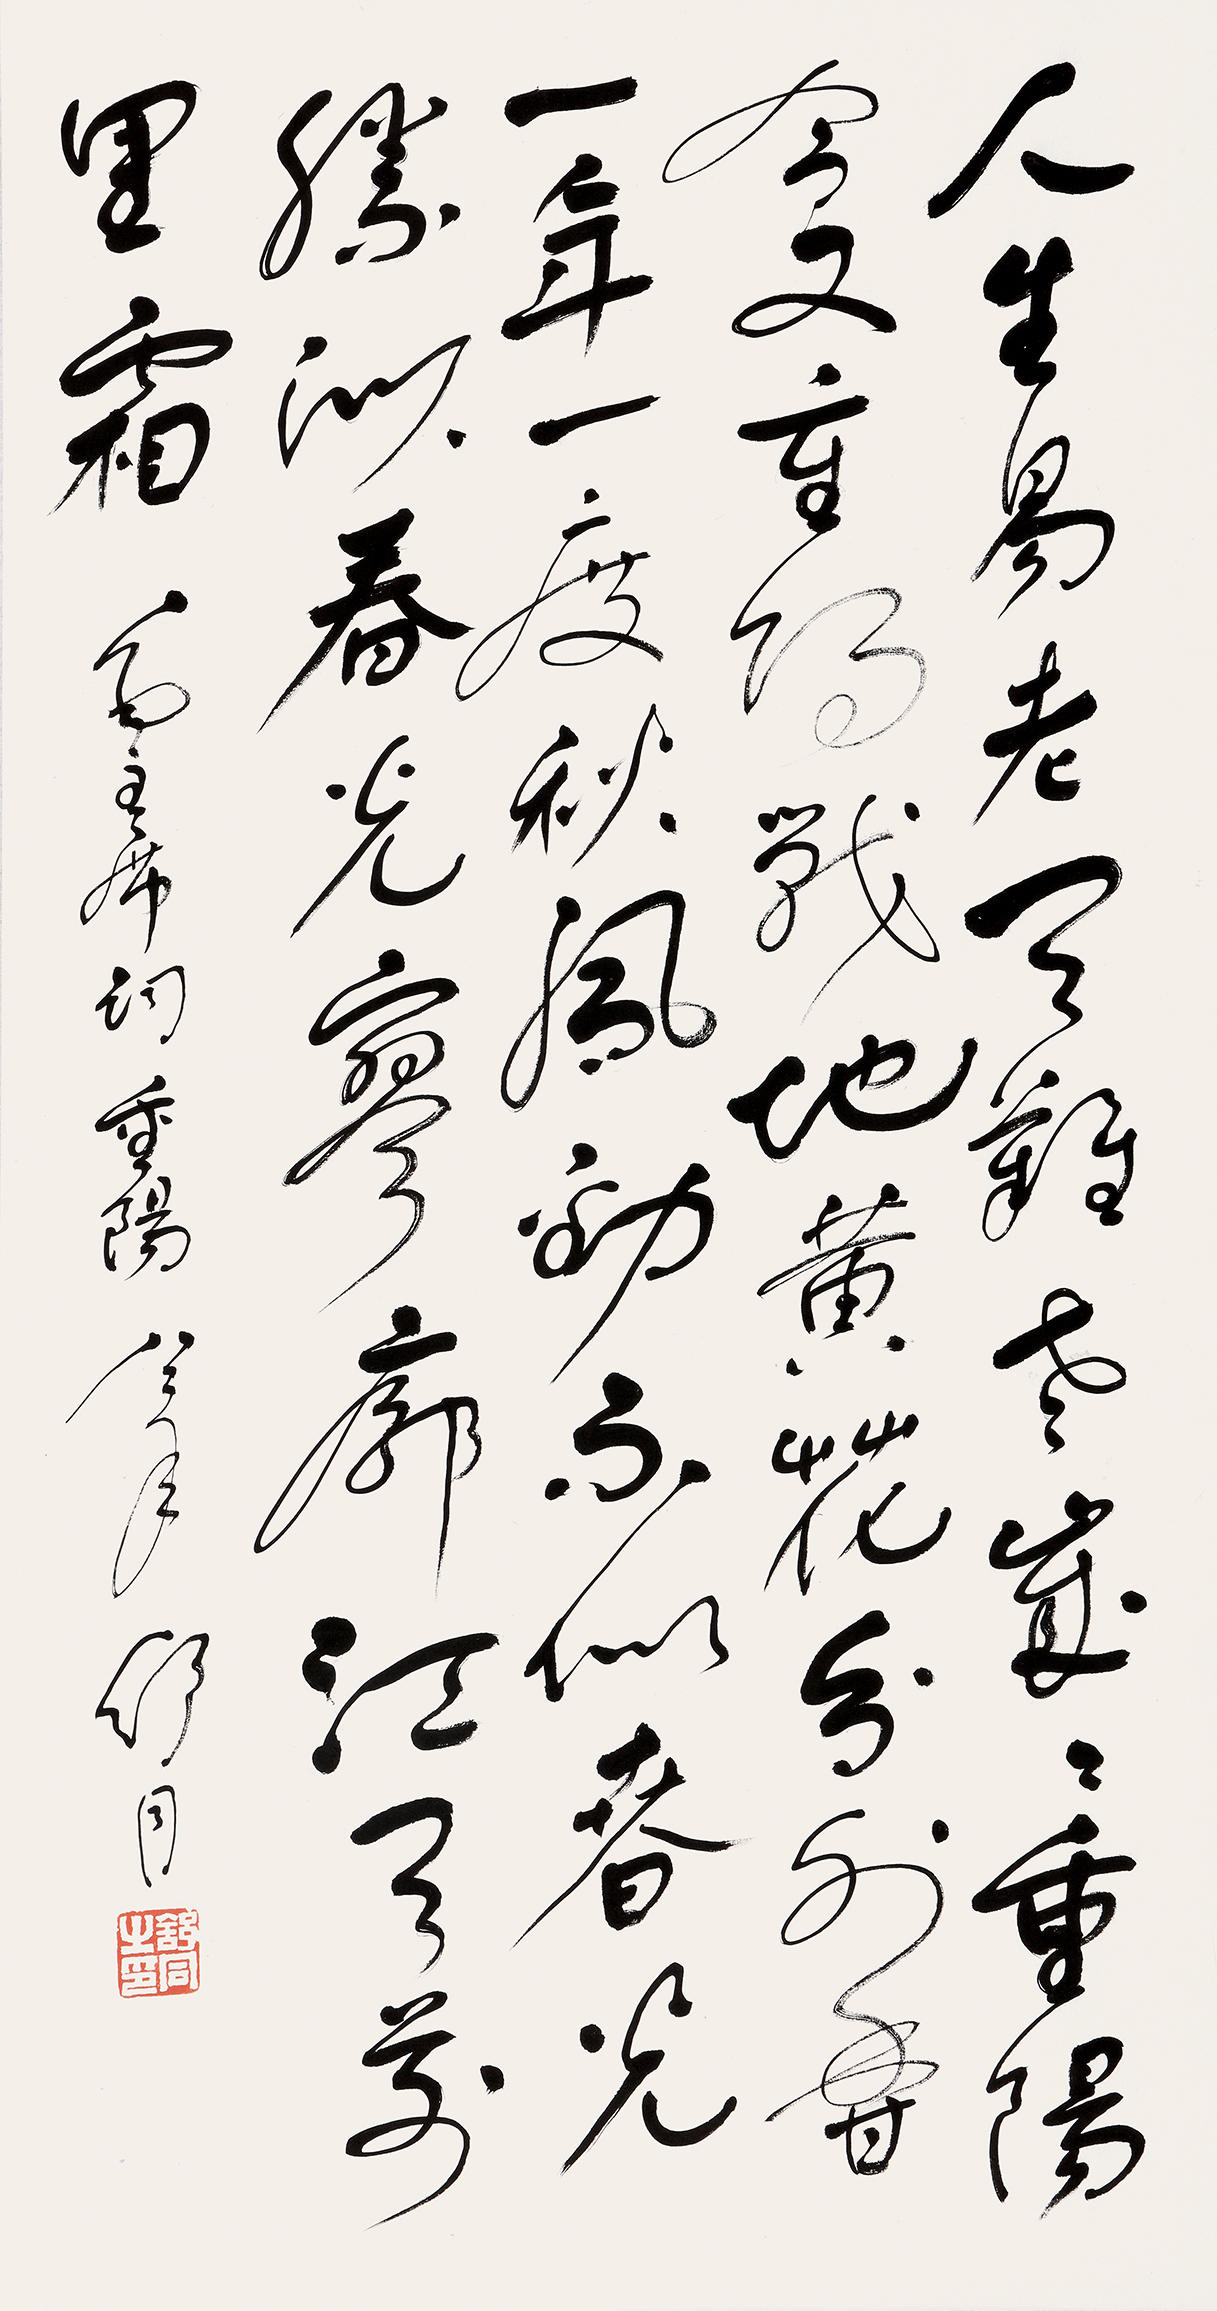 人生易老天難老歲〻重陽
今又重陽戰地黃花分外香
一年一度秋風勁不似春光
勝似春光寥廓江天萬
里霜 毛主席詞重陽 癸亥 舒同
舒同之印